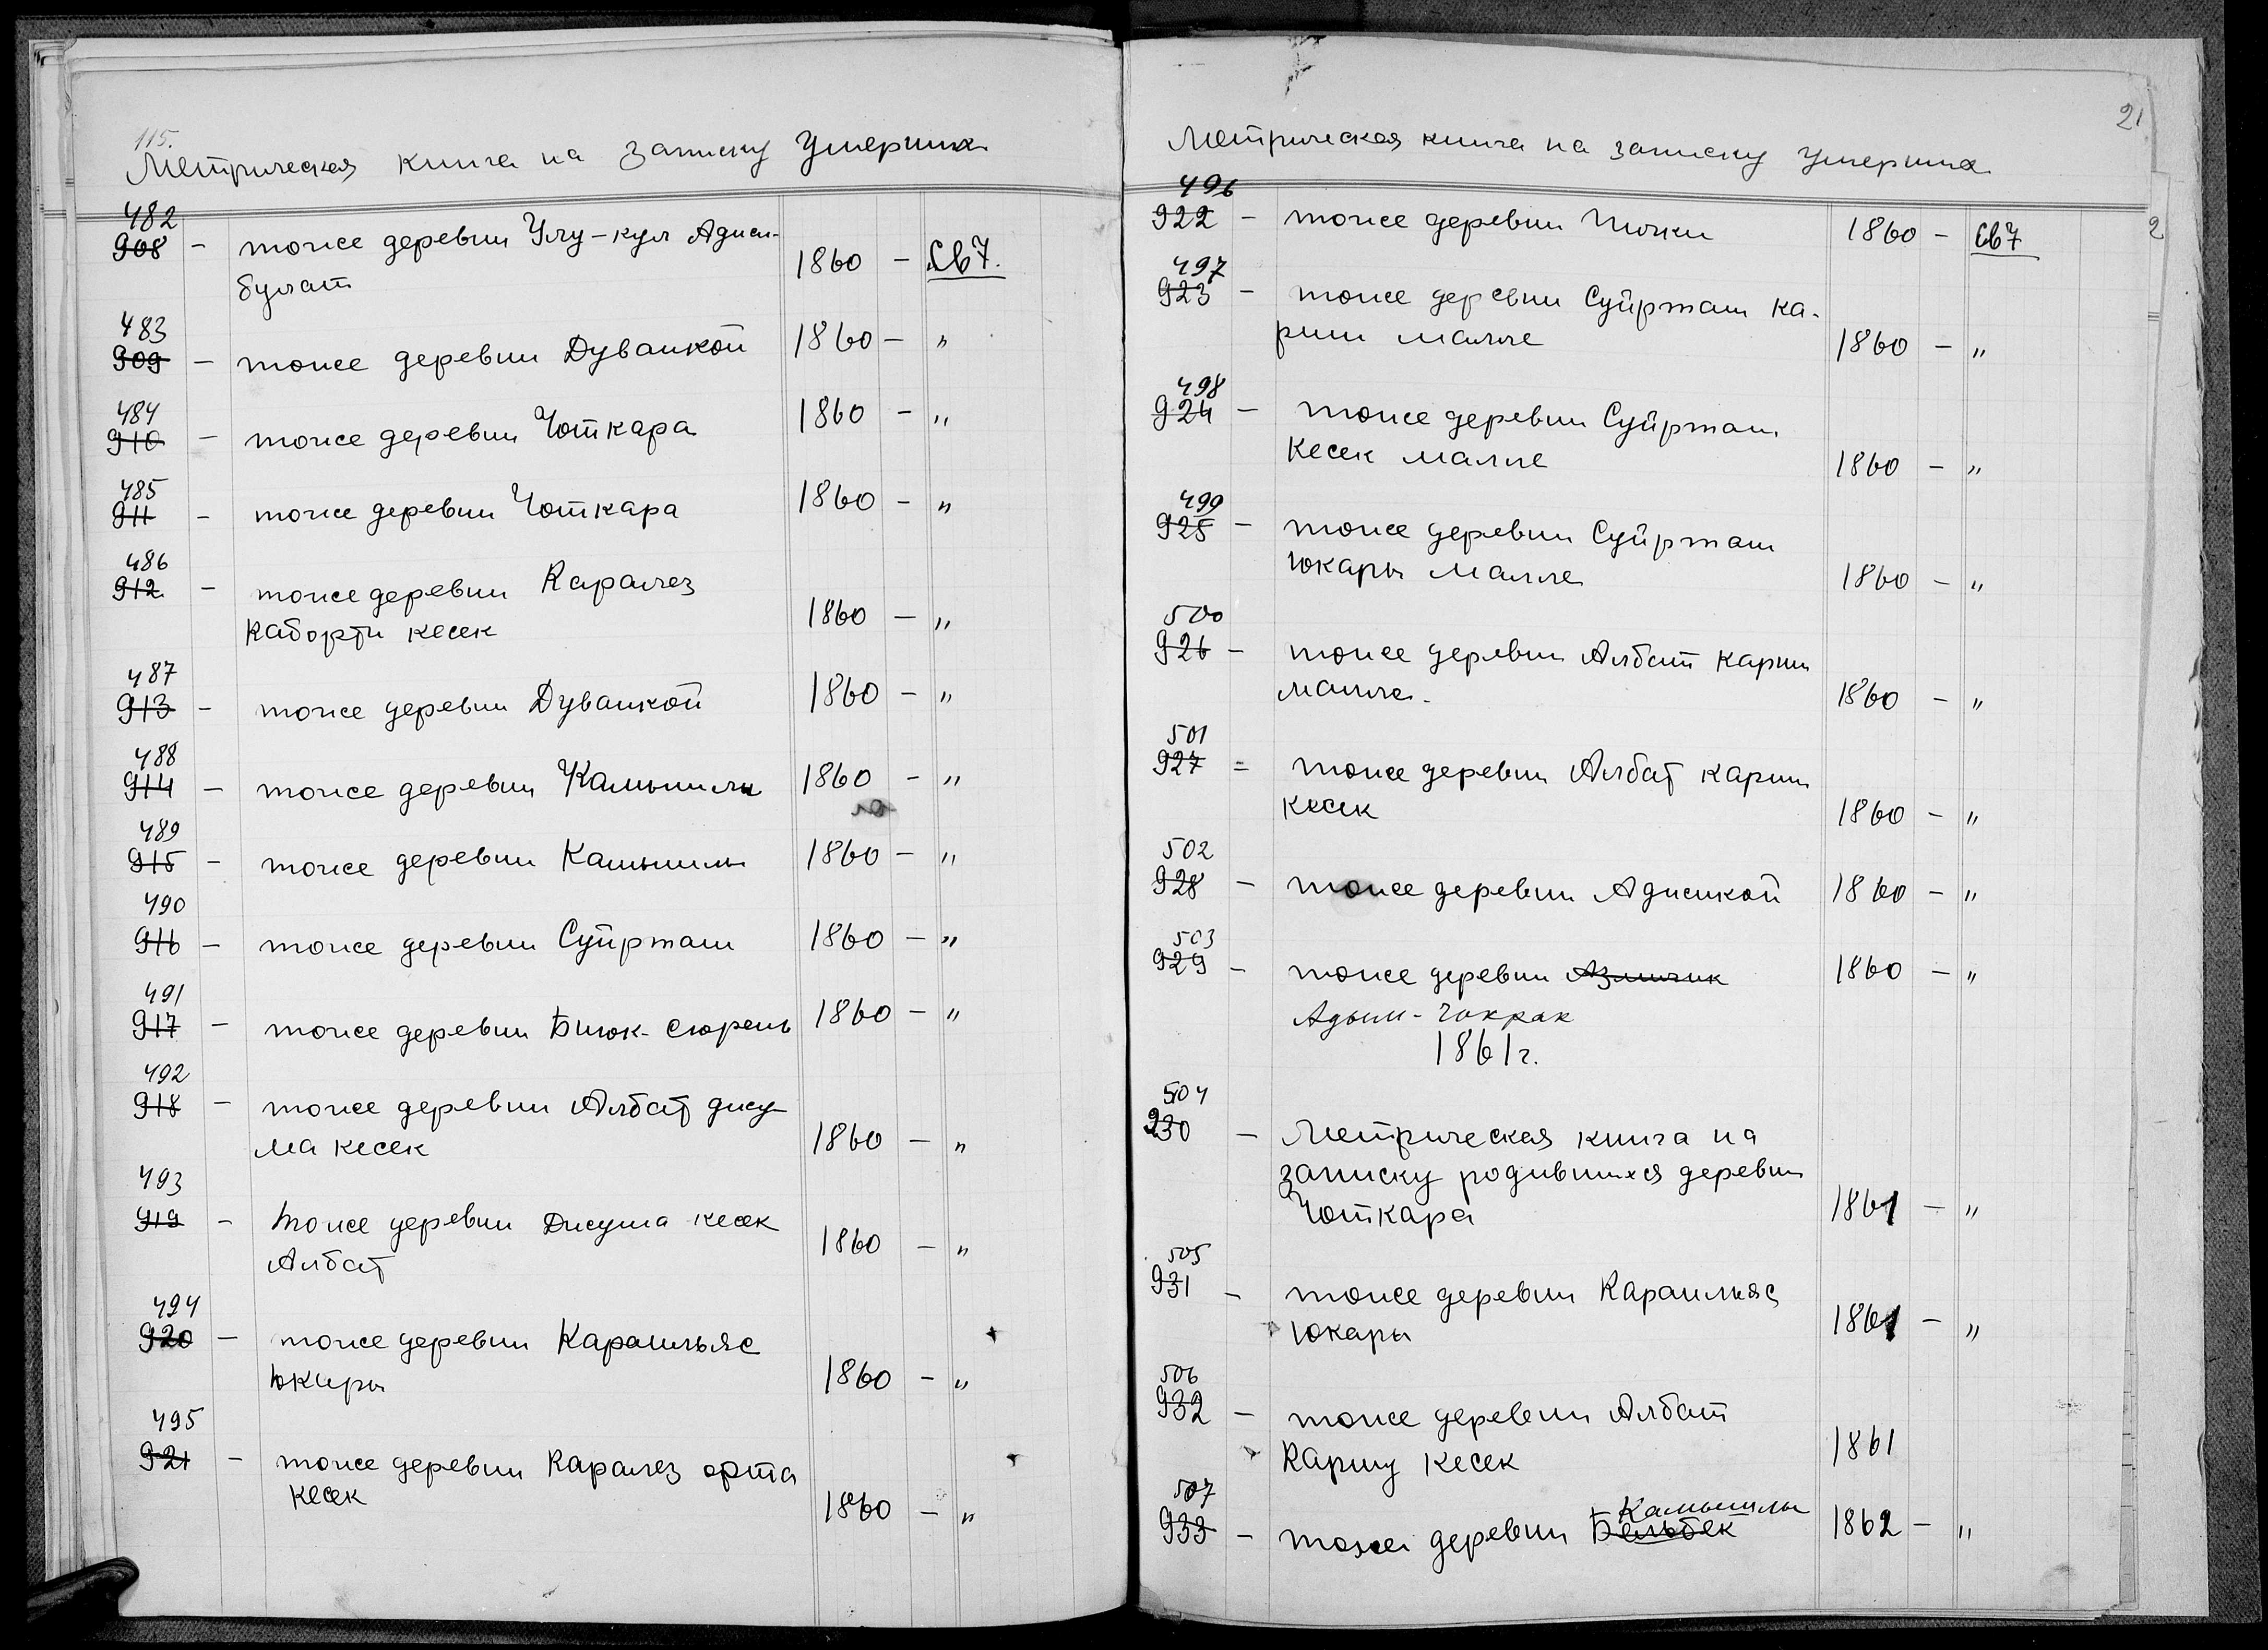 115.
Метрическая книга на записку умерших
482
908 – тоже деревни Улу-кул Аджи- 1860 – Св7.
булат
483
909 – тоже деревни Дуванкой 1860 – "
484
910 – тоже деревни Чоткара 1860 – "
485
911 – тоже деревни Чоткара 1860 – "
486
912 – тоже деревни Каралез
Каборти кесек 1860 – "
487
913 – тоже деревни Дуванкой 1860 – "
488
914 – тоже деревни Камышлы 1860 – "
489
915 – тоже деревни Камышлы 1860 – "
490
916 – тоже деревни Суйрташ 1860 – "
491
917 – тоже деревни Биюк-сюрень 1860 – "
492
918 – тоже деревни Албат джу-
ма кесек 1860 – "
493
919 – тоже деревни Джума кесек
Албат 1860 – "
494
920 – тоже деревни Караильяс
Юкары 1860 – "
495
921 – тоже деревни Каралез орта
кесек 1860 – "
21
Метрическая книга на записку умерших
496
922 – тоже деревни Пички 1860 – Св7
497
923 – тоже деревни Суйрташ ка-
рши малле 1860 – "
498
924 – тоже деревни Суйрташ
кесек малле 1860 – "
499
925 – тоже деревни Суйрташ
юкары малле 1860 – "
500
926 – тоже деревни Албат карши
малле. 1860 – "
501
927 = тоже деревни Албат карши
кесек 1860 – "
502
928 – тоже деревни Аджикой 1860 – "
503
929 – тоже деревни Азличик 1860 – "
Адым-Чокрак
1861 г.
504
930 – Метрическая книга на
записку родившихся деревни
Чоткара 1861 – "
505
931 – тоже деревни Караильяс
Юкары 1861 – "
506
932 – тоже деревни Албат
Каршу кесек 1861
507
Камышлы
933 – тоже деревни Бельбек 1862 – "
2